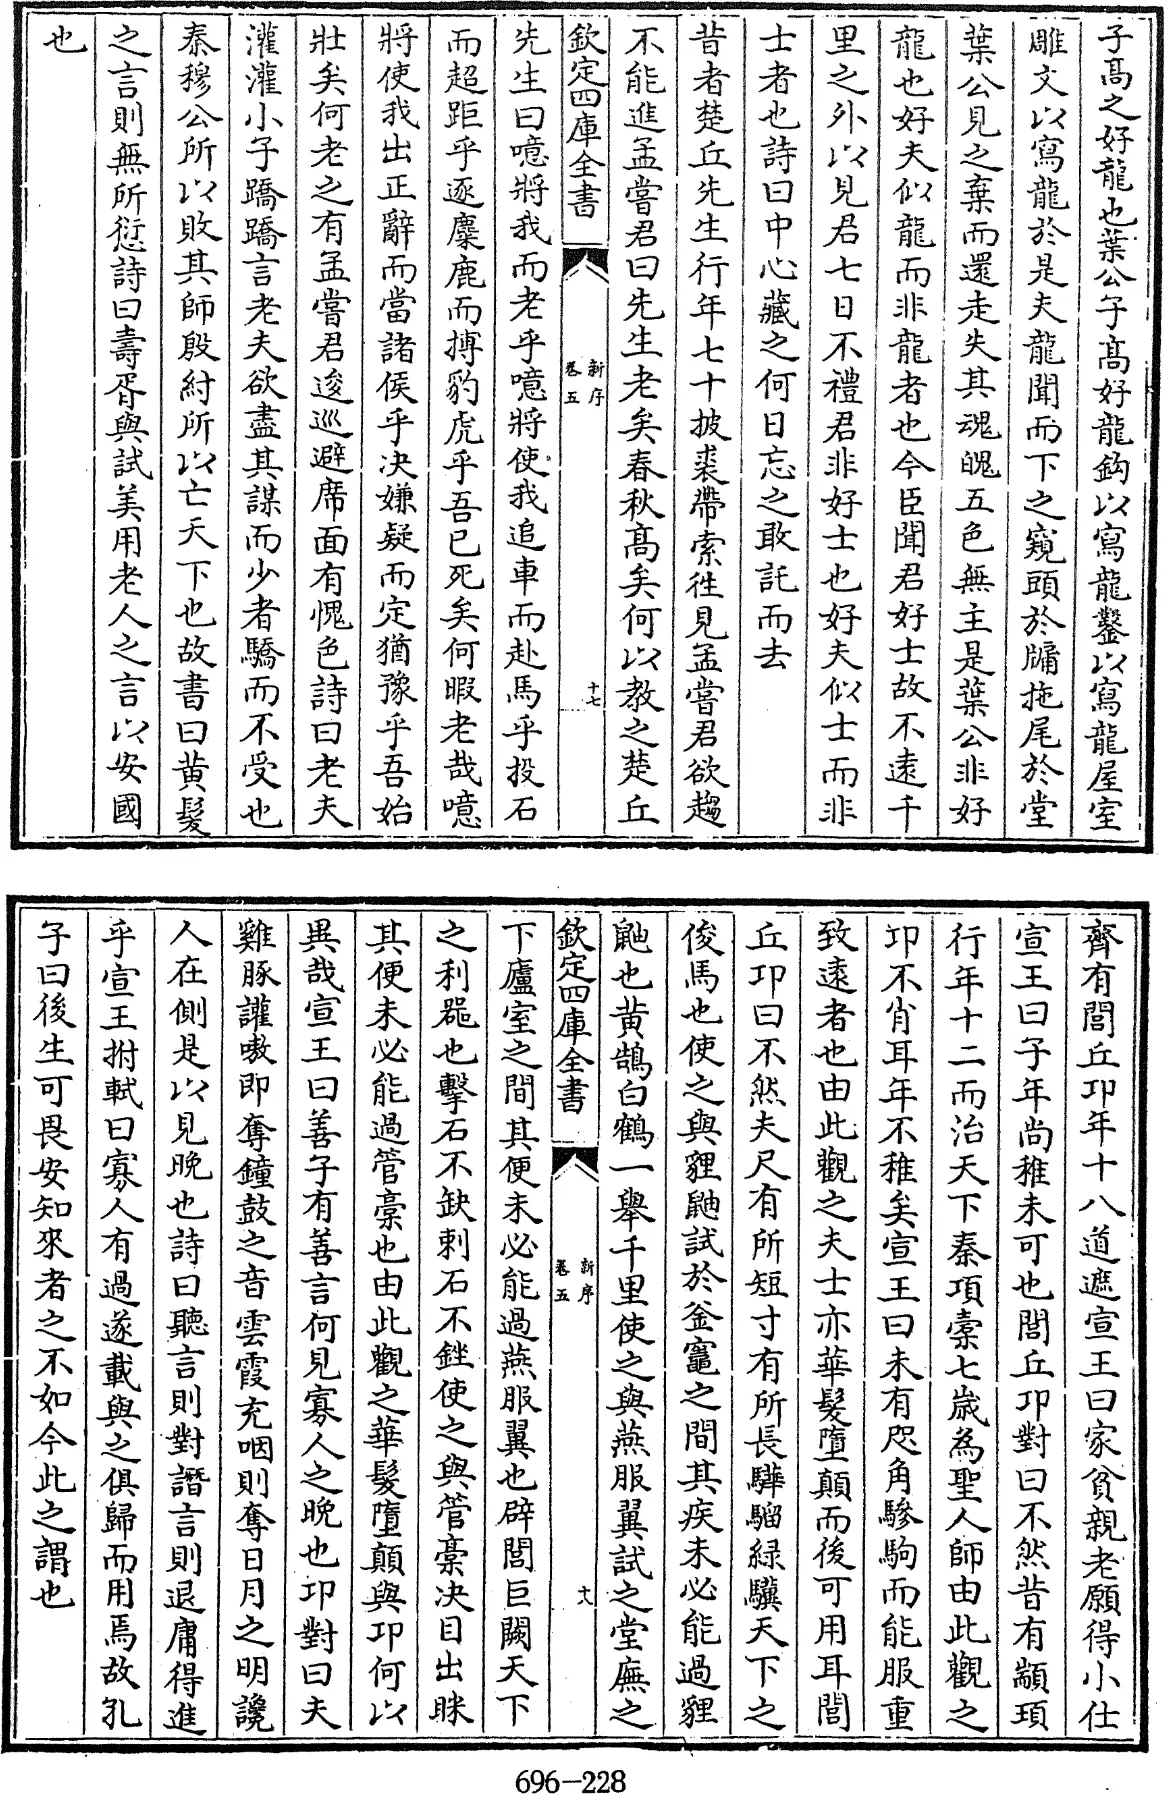 子髙之好龍也葉公子髙好龍鈎以寫龍鑿以寫龍屋室
雕文以寫龍於是夫龍聞而下之窺頭於牗拖尾於堂
葉公見之棄而還走失其魂魄五色無主是葉公非好
龍也好夫似龍而非龍者也今臣聞君好士故不逺千
里之外以見君七日不禮君非好士也好夫似士而非
士者也詩曰中心藏之何日忘之敢託而去
昔者楚丘先生行年七十披裘帶索徃見孟嘗君欲趨
不能進孟嘗君曰先生老矣春秋髙矣何以教之楚丘
欽定四庫全書
新序
卷五
十七
先生曰噫將我而老乎噫將使我追車而赴馬乎投石
而超距乎逐麋鹿而搏豹虎乎吾已死矣何暇老哉噫
將使我出正辭而當諸侯乎决嫌疑而定猶豫乎吾始
壯矣何老之有孟嘗君逡巡避席面有愧色詩曰老夫
灌灌小子蹻蹻言老夫欲盡其謀而少者驕而不受也
秦穆公所以敗其師殷紂所以亡天下也故書曰黄髮
之言則無所愆詩曰壽胥與試美用老人之言以安國
也
齊有閭丘卭年十八道遮宣王曰家貧親老願得小仕
宣王曰子年尚稚未可也閭丘卭對曰不然昔有顓頊
行年十二而治天下秦項橐七歳為聖人師由此觀之
卭不肖耳年不稚矣宣王曰未有咫角驂駒而能服重
致逺者也由此觀之夫士亦華髮墮顛而後可用耳閭
丘卭曰不然夫尺有所短寸有所長驊騮緑驥天下之
俊馬也使之與貍鼬試於釜竈之間其疾未必能過貍
鼬也黄鵠白鶴一舉千里使之與燕服翼試之堂廡之
欽定四庫全書
新序
卷五
十八
下廬室之間其便未必能過燕服翼也辟閭巨闕天下
之利器也擊石不缺刺石不銼使之與管橐决目出眯
其便未必能過管橐也由此觀之華髮墮顛與卭何以
異哉宣王曰善子有善言何見寡人之晚也卭對曰夫
雞豚讙嗷即奪鐘鼓之音雲霞充咽則奪日月之明讒
人在側是以見晚也詩曰聽言則對譖言則退庸得進
乎宣王拊軾曰寡人有過遂載與之俱歸而用焉故孔
子曰後生可畏安知來者之不如今此之謂也
696-228